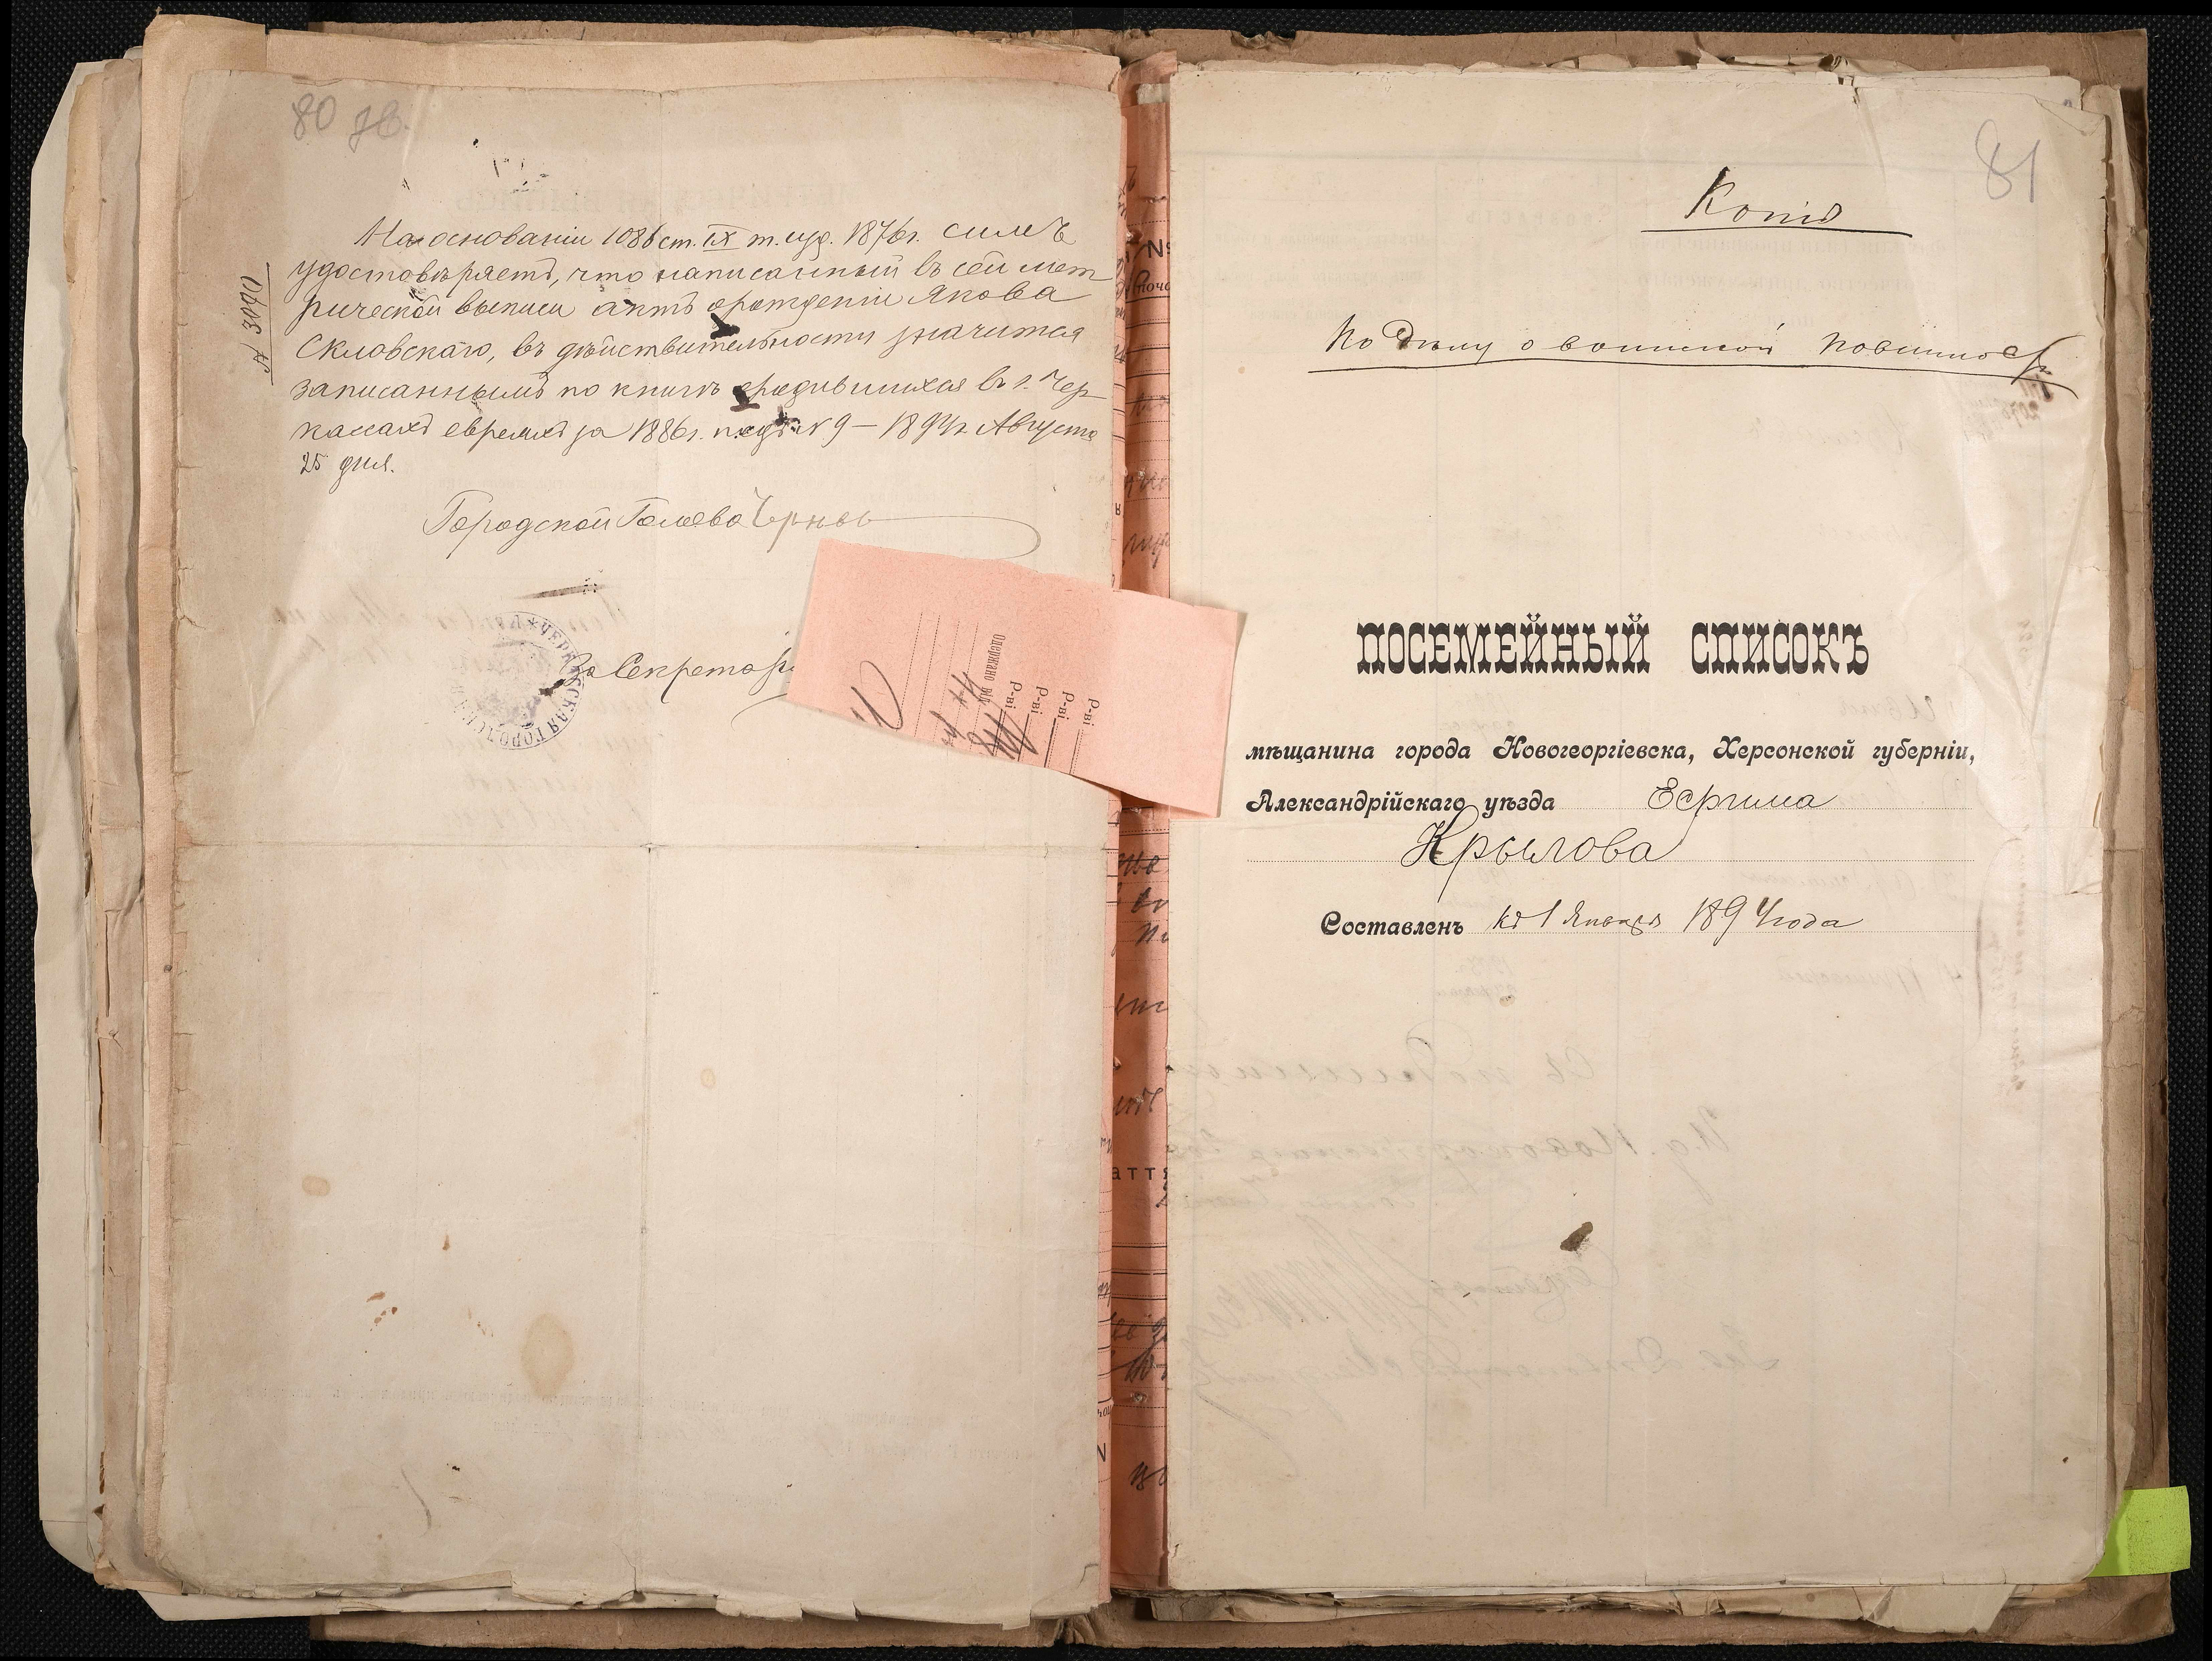 80 зв.
На основаніи 1086 ст. IX т. изд. 1876 г. симъ
удостовѣряетъ, что написанный въ сей мет
рической выписи актъ о рожденіи Якова
Скловскаго, въ дѣйствительности значится
записаннымъ по книгѣ о родившихся въ г. Чер
кассахъ евреяхъ за 1886 г. подъ № 9 — 1894 г. Августа
25 дня.
№ 3090
Городской Голова
За Секретаря
ЧЕРКАССКАЯ ГОРОДСК
одержано від
Р-ві
Р-ві
Р-ві
Р-ві
81
Копія
По дѣлу о воинской повинност
ПОСЕМЕЙНЫЙ СПИСОКЪ
мѣщанина города Новогеоргіевска, Херсонской губерніи,
Александрійскаго уѣзда
Крылова
Составленъ къ 1 Января 1894 года